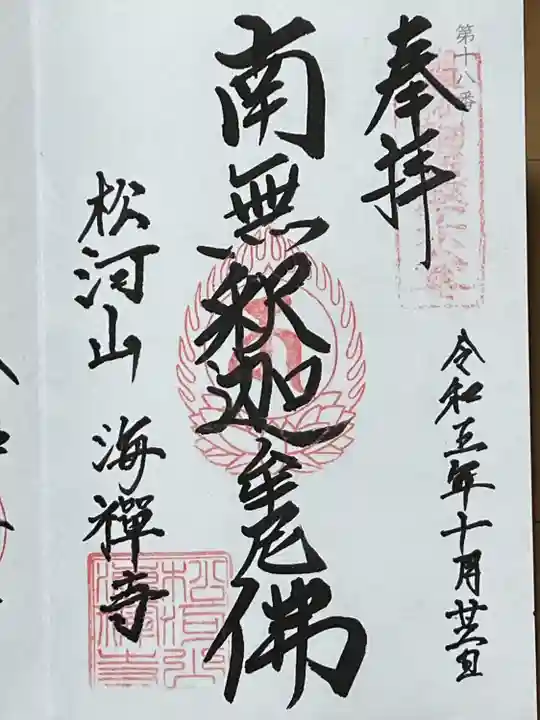 第十八番
奉拝
令和五年十月廿一日
南無釈迦牟尼佛
松河山 海禪寺